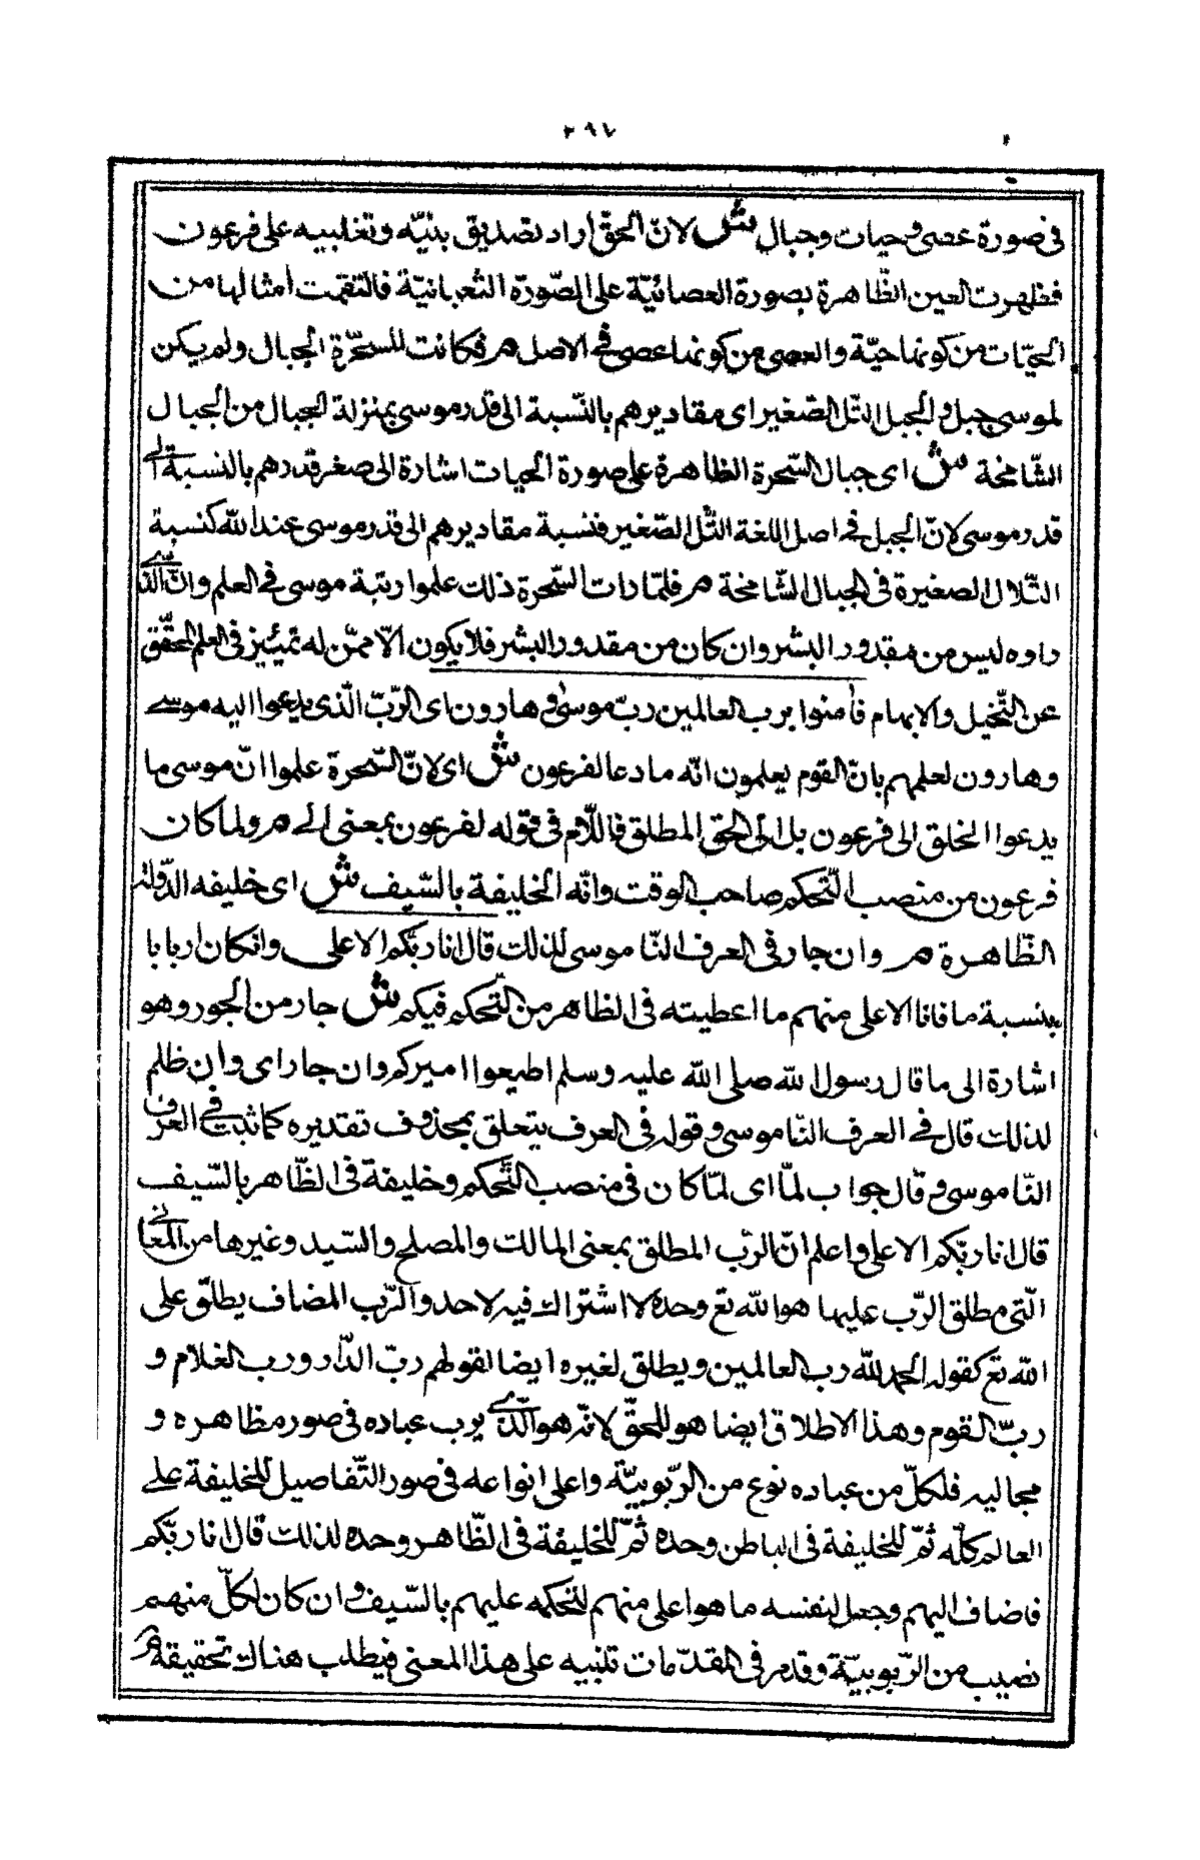 ٣٩٧
فى صورة عصى وحيات وجبال ش لانّ الحقّ اراد تصديق بنيّه وتغليبه على فرعون
فظهرت العين الظّاهرة بصورة العصائيّة على الصّورة الثعبانيّة فالتقمت امثالها من
الحيّات من كونها حيّة والعصى من كونها عصى فى الاصل م فكانت للسحّرة الجبال ولم يكن
لموسى جبل والجبل التّل الصّغير اى مقاديرهم بالنّسبة الى قدر موسى بمنزلة الجبال من الجبال
الشّامخة ش اى جبال السّحرة الظاهرة على صورة الحيات اشارة الى صغر قدرهم بالنسبة الى
قدر موسى لانّ الجبل فى اصل اللغة التّل الصّغير فنسبة مقاديرهم الى قدر موسى عند الله كنسبة
التّلال الصغيرة فى الجبال الشّامخة م فلمّا رات السّحرة ذلك علموا رتبة موسى فى العلم وانّ الّذى
راوه ليس من مقدور البشر وان كان من مقدور البشر فلا يكون الاّ ممّن له تميّيز فى العلم المحقّق
عن التّخيل والايهام فآمنوا برب العالمين ربّ موسى وهارون اى الرّبّ الّذى يدعوا اليه موسى
وهارون لعلمهم بانّ القوم يعلمون انّه ما دعا لفرعون ش اى لانّ السّحرة علموا انّ موسى ما
يدعوا الخلق الى فرعون بل الى الحق المطلق فاللّام فى قوله لفرعون بمعنى الى م ولما كان
فرعون من منصب التّحكم صاحب الوقت وانّه الخليفة بالسّيف ش اى خليفه الدّولة
الظّاهرة م وان جار فى العرف النّاموسى لذلك قال انا ربّكم الاعلى وان كان اربابا
بنسبة ما فانا الاعلى منهم ما اعطيته فى الظاهر من التّحكم فيكم ش جار من الجور وهو
اشارة الى ما قال رسول الله صلى الله عليه وسلم اطيعوا اميركم وان جار اى وان ظلم
لذلك قال فى العرف النّاموسى وقوله فى العرف يتعلق بمحذوف تقديره كما ثبت فى العرف
النّاموسى وقال جواب لمّا اى لمّا كان فى منصب التّحكم وخليفة فى الظّاهر بالسّيف
قال انا ربّكم الاعلى واعلم انّ الرّب المطلق بمعنى المالك والمصلح والسّيد وغيرها من المعانى
الّتى مطلق الرّب عليها هو الله تع وحده لا اشتراك فيه لاحد والرّب المضاف يطلّق على
الله تع كقوله الحمد لله رب العالمين ويطلق لغيره ايضا لقولهم ربّ الدّار ورب الغلام و
ربّ القوم وهذا الاطلاق ايضا هو للحقّ لانّه هو الّذى يرب عباده فى صور مظاهره و
مجاليه فلكلّ من عباده نوع من الرّبوبيّة واعلى انواعه فى صور التّفاصيل للخليفة على
العالم كلّه ثمّ للخليفة فى الباطن وحده ثمّ للخليفة فى الظّاهر وحده لذلك قال انا ربّكم
فاضاف اليهم وجعل لنفسه ما هو اعلى منهم لتحكمه عليهم بالسّيف وان كان لكلّ منهم
نصيب من الرّبوبيّة وقد مر فى المقدّمات تنبيه على هذا المعنى فيطلب هناك تحقيقة م